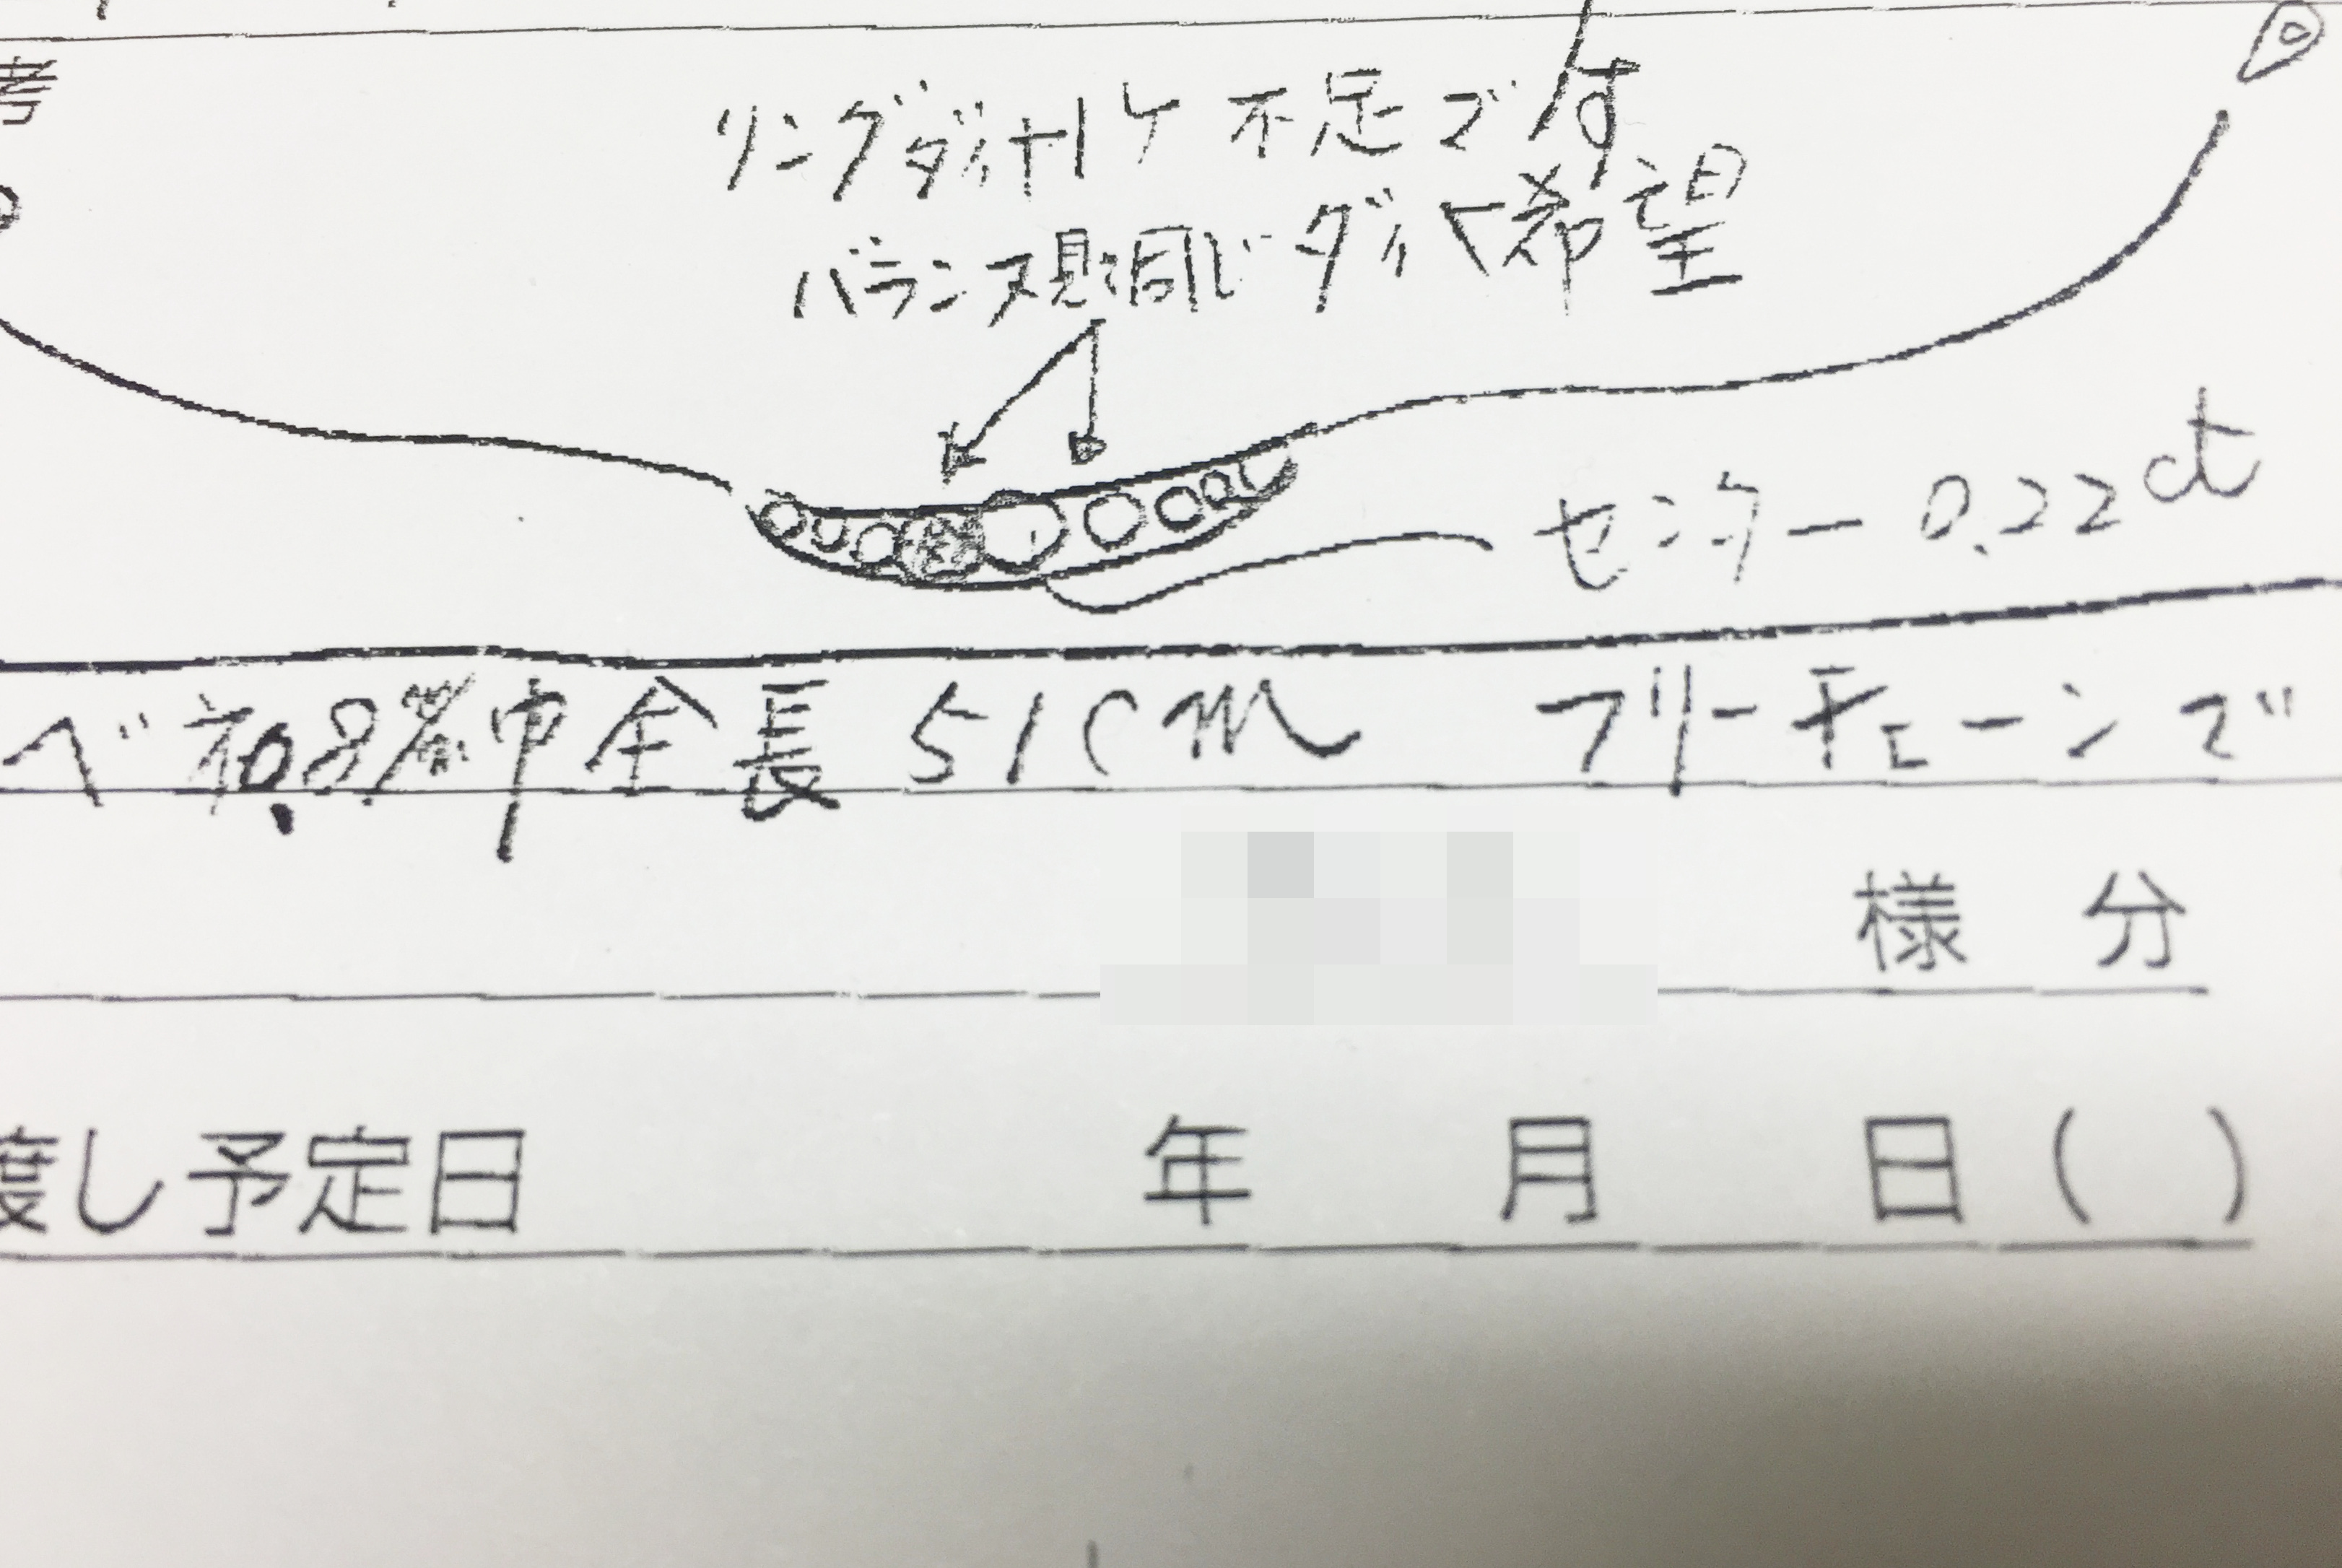 考
リングダイヤ1ケ不足です
バランス見て同じダイヤ希望
センター 0.22ct
ベネ0.8 全長51cm フリーチェーンで
様 分
渡し予定日 年 月 日( )